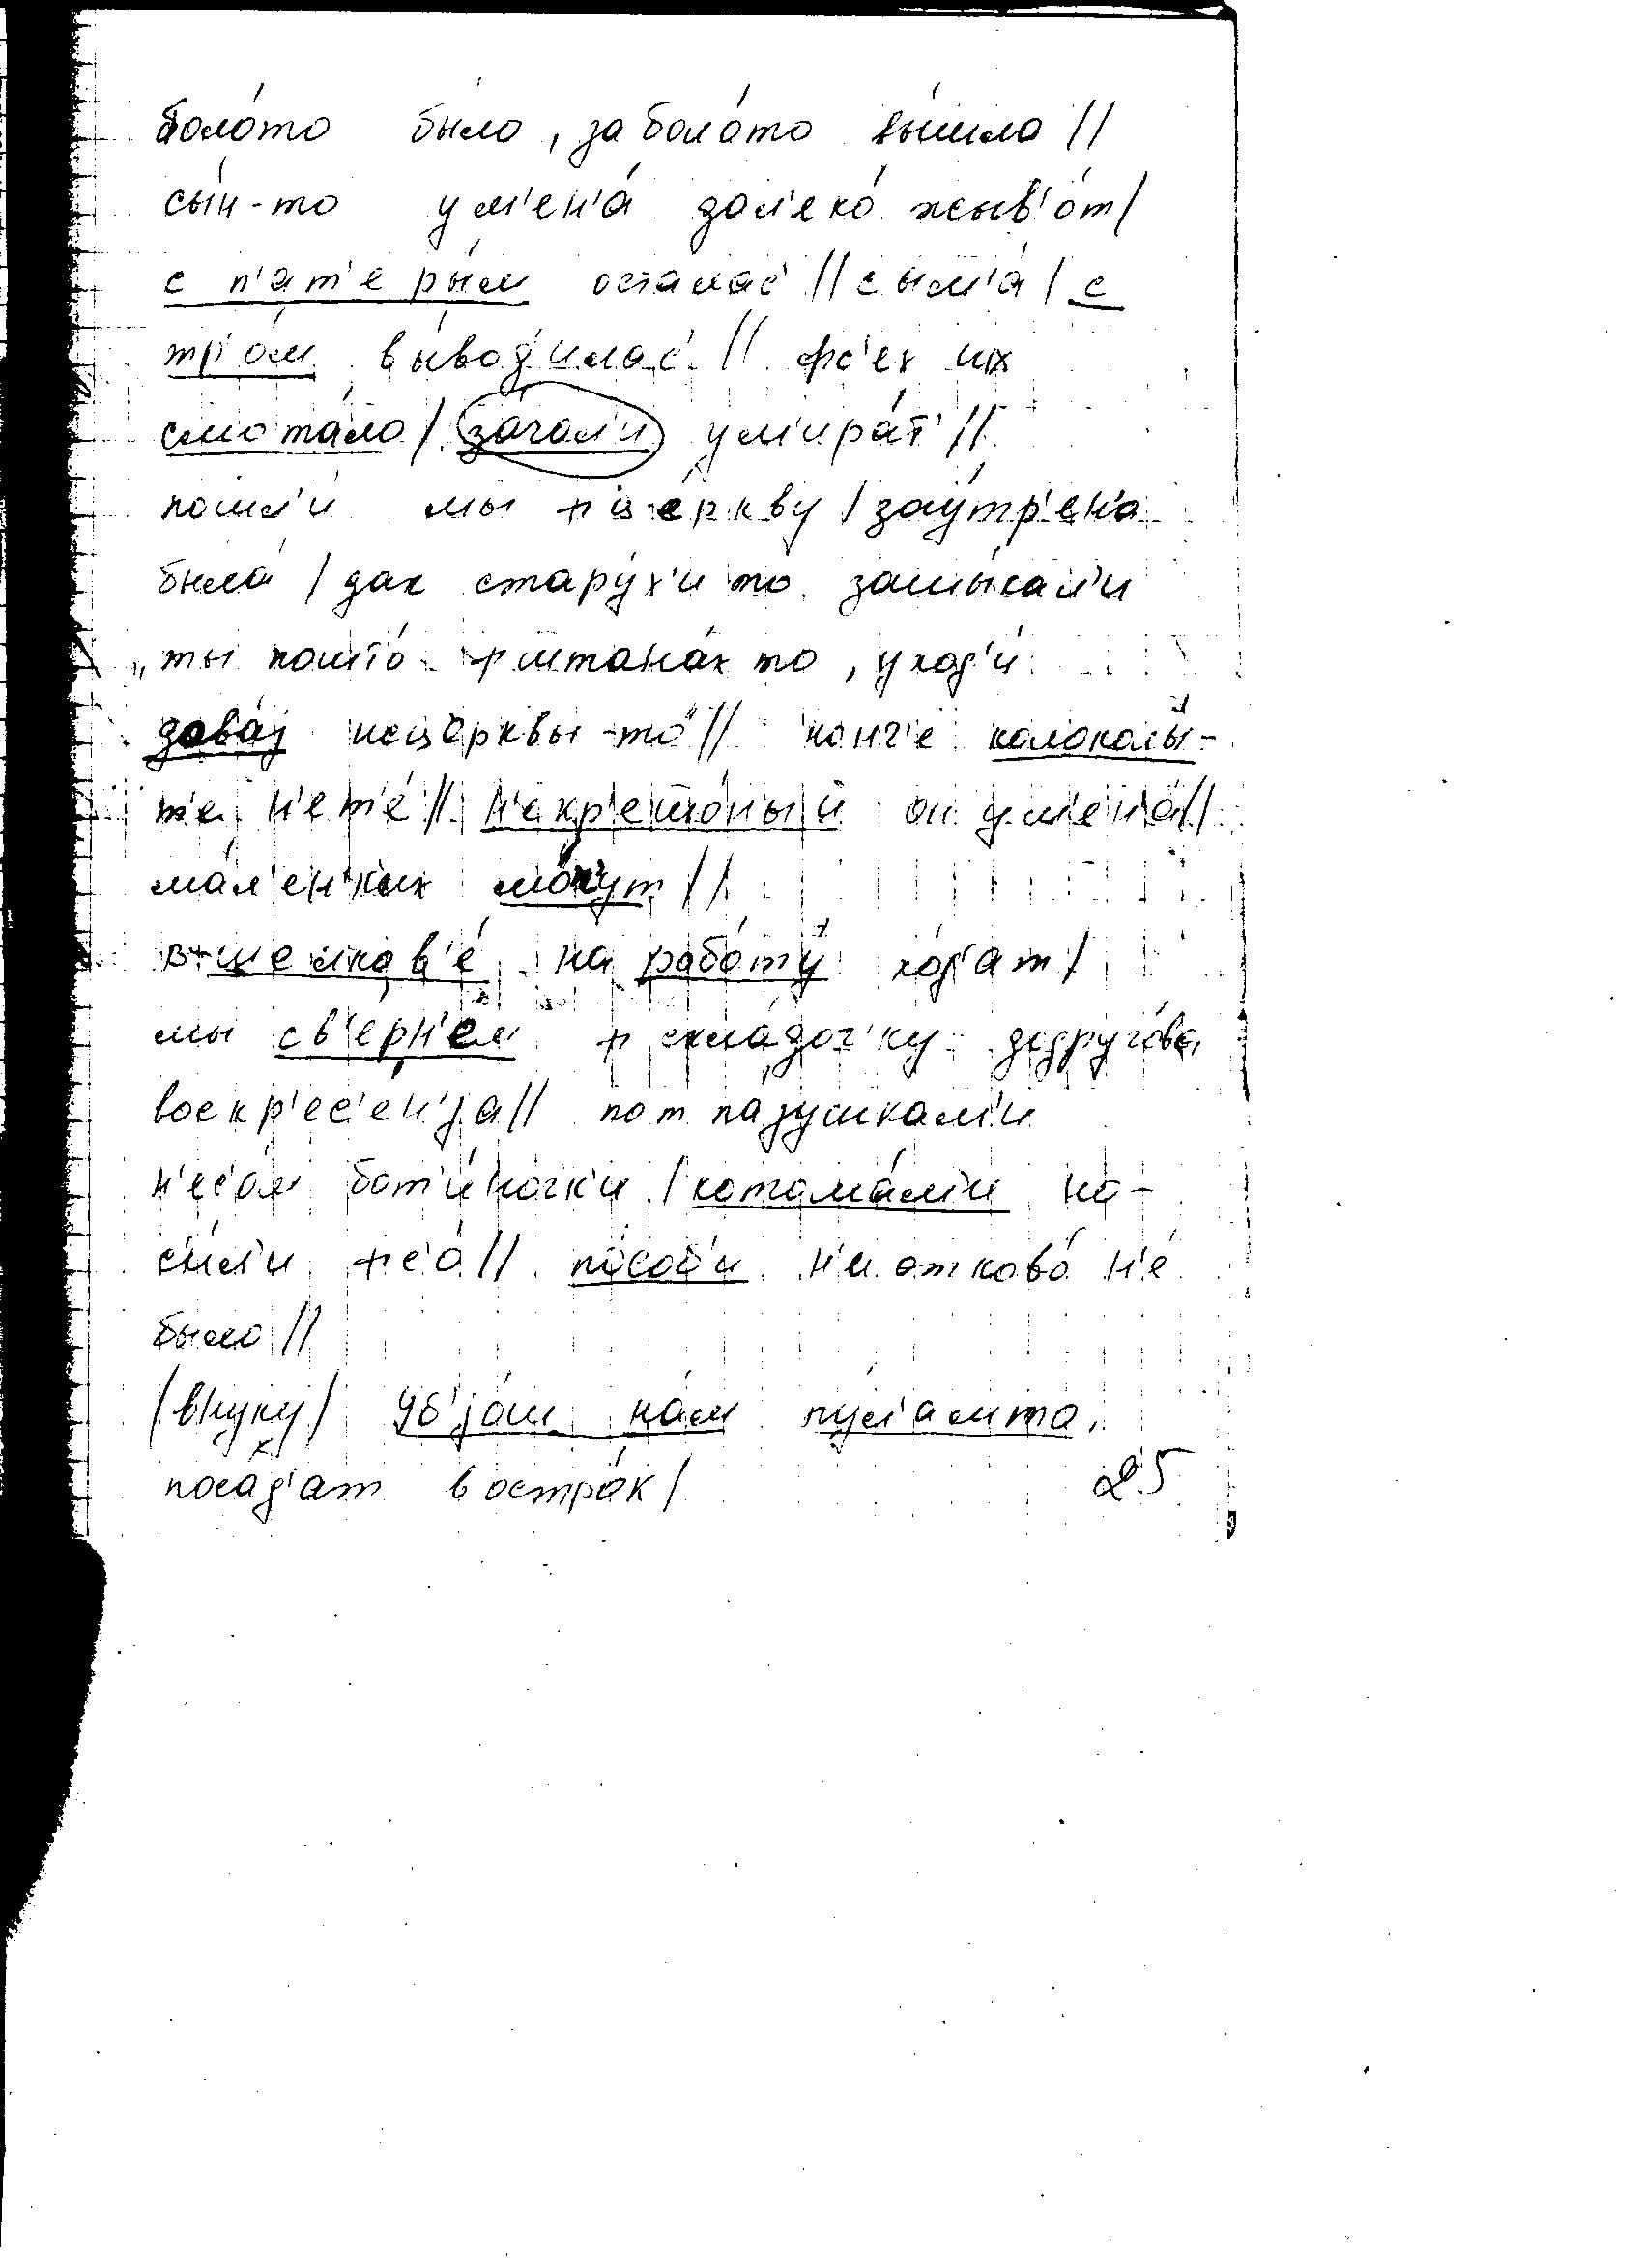 боло́то бы́ло, за боло́то вы́шло //
сы́н-то у м'ен'а́ дал'еко́ жыв'о́т /
с п'ат'еры́м остала́с' // сым'а́ / с
тр'о́м вы́вод'илас' // фс'ех их
смота́ло / за́чал'и ум'ира́т' //
пошл'и́ мы ф це́ркву / зау́тр'ен'а
была́ / дак стару́х'и то зашы́кал'и
„ты пошто́ ф штана́х то, уход'и́
дава́j ис це́рквы-то" // нонч'е колоколы́-
те н'ет'е́ // н'екр'ешшо́ный он у м'ен'а́ //
ма́л'ен'ких мо́чут //
в на рабо́ту хо́д'ат /
мы св'ерн'е́м ф скла́доч'ку до друго́ва
воскр'ес'е́н'jа // пот па́зушкам'и
н'ес'о́м бот'и́ночк'и / котома́м'и но-
с'и́л'и фс'о́ // посо́б'и н'и от ково́ н'е́
было //
/внуку/ уб'jо́ш на́м пу́л'ам то,
поса́д'ат в остро́к /
25